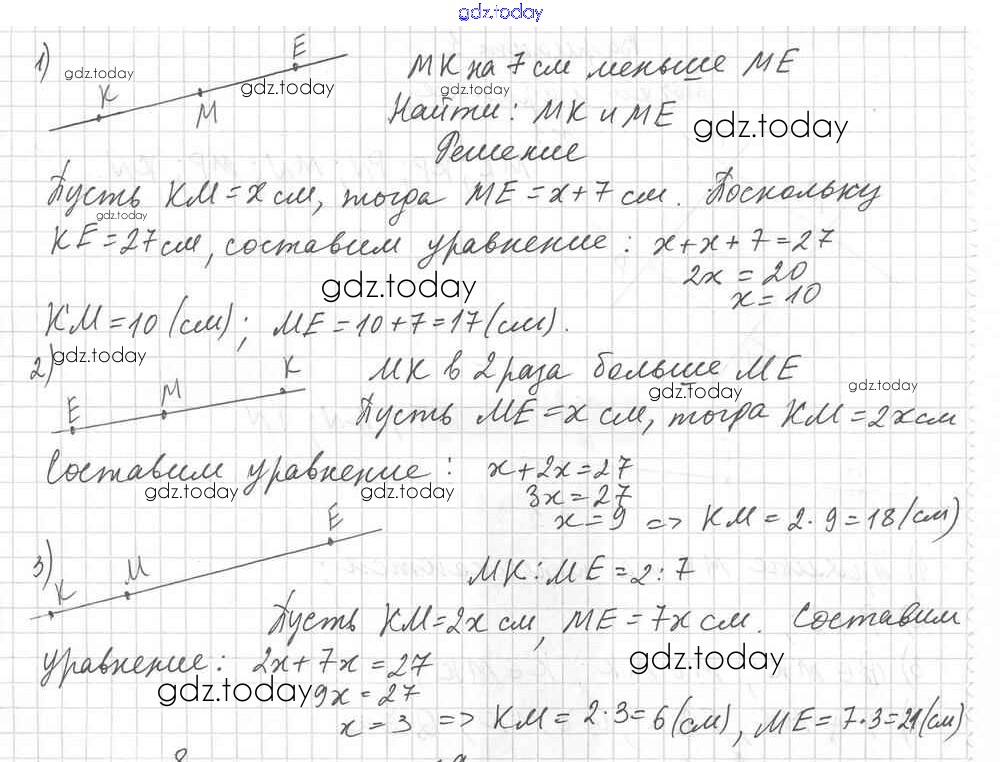 gdz.today
1) gdz.today K M E gdz.today МК на 7 см меньше МЕ
gdz.today
Найти: МК и МЕ gdz.today
Решение
Пусть КМ = x см, тогда МЕ = x + 7 см. Поскольку
gdz.today
КЕ = 27 см, составим уравнение: x + x + 7 = 27
2x = 20
gdz.today x = 10
КМ = 10 (см); МЕ = 10 + 7 = 17 (см).
gdz.today
2) E M K МК в 2 раза больше МЕ
gdz.today gdz.today
Пусть МЕ = x см, тогда КМ = 2x см
Составим уравнение: x + 2x = 27
gdz.today gdz.today 3x = 27
x = 9 => КМ = 2 · 9 = 18 (см)
3) K M E МК : МЕ = 2 : 7
Пусть КМ = 2x см, МЕ = 7x см. Составим
уравнение: 2x + 7x = 27 gdz.today
gdz.today 9x = 27
x = 3 => КМ = 2 · 3 = 6 (см), МЕ = 7 · 3 = 21 (см)